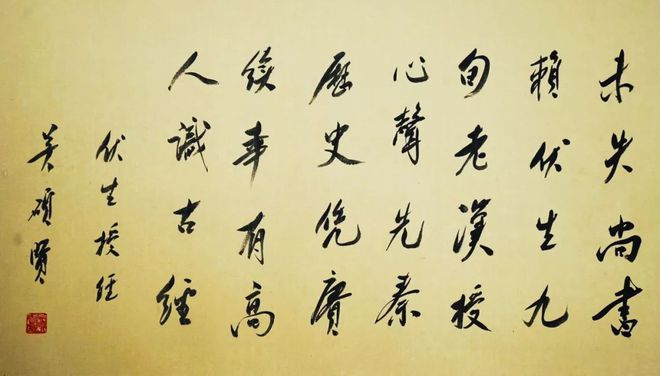 未失尚書
賴伏生九
旬老漢授
心聲先秦
歷史凭賡
续幸有高
人識古經
伏生授经
吴硕贤